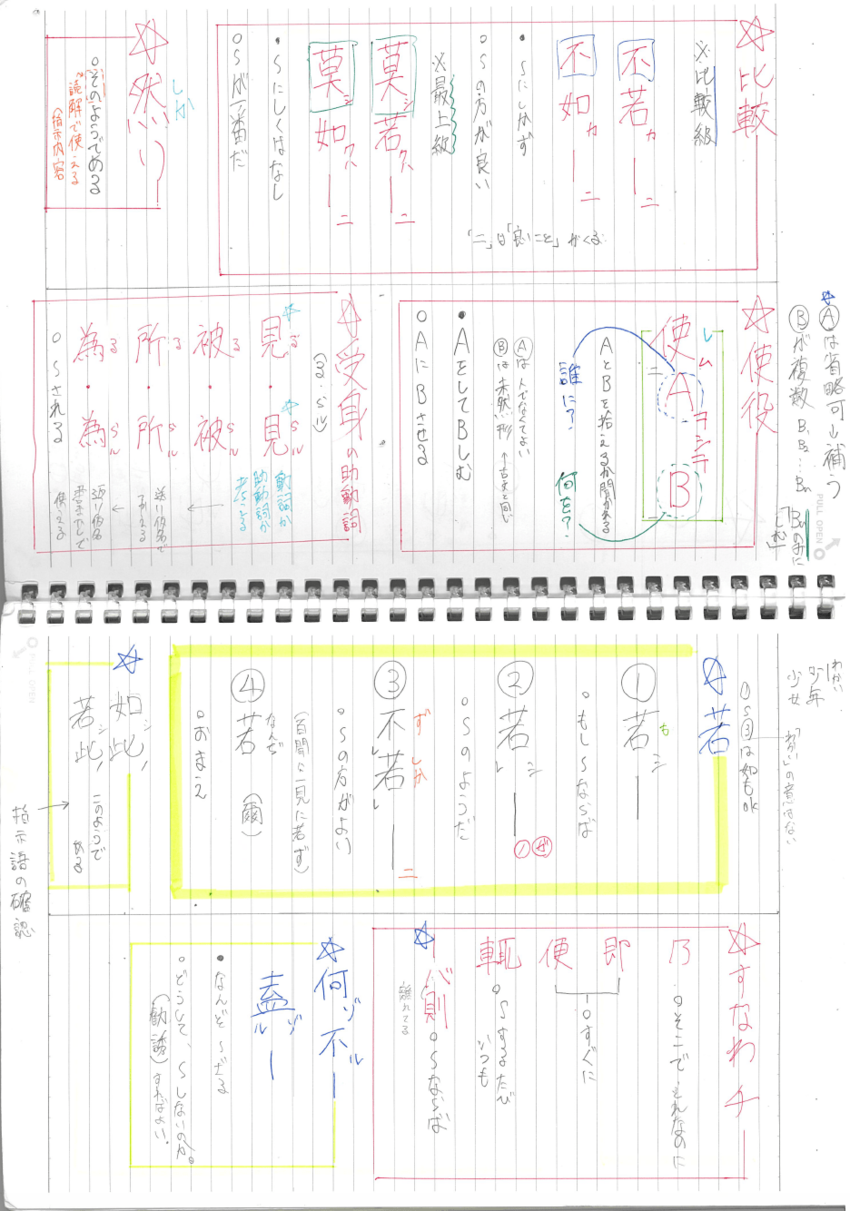 ☆比較
※比較級
不若カ―ニ
不如カ―ニ
・〜にしかず
○〜の方が良い
※最上級
莫シ若クハ―ニ
莫シ如クハ―ニ
・〜にしくはなし
○〜が一番だ
「ニ」は「良いこと」がくる
☆然り
しか
○そのようである
読解で使える
(指示内容
☆Ⓐは省略可→補う
Ⓑが複数 B₁ B₂ … Bn
「Bnのみに
しむ」
PULL OPEN
☆使役
使レムAヲシテB二
AとBを抜える
誰に?
何を?
Ⓐは人でなくてよい
Ⓑは未然形 ↑古文と同じ
・AをしてBしむ
○AにBさせる
☆受身の助動詞
(る・らル)
☆見る・☆見らル
動詞か
助動詞か
考える
被る・被らル
所る・所らル
送り仮名で
為る・為らル
送り仮名
○〜される
わかい
少年
少女
「わかい」の意はない
①〜③は如もok
☆若
①若もシ―
○もし〜ならば
②若レシ― ノ ガ
○〜のようだ
③不レ若レ―ニ
ず しか
○〜の方がよい
(百聞は一見に若ず)
④若なんぢ (爾)
○おまえ
☆如シ此ノ
若シ此ノ このようで
ある
指示語の確認
PULL OPEN
☆すなわチ
乃・○そこで・それなのに
即
便
○すぐに
輒 ○〜するたび
いつも
☆則 ○〜ならば
☆何ゾ不ル―
盍ゾル―
・なんぞ〜ざる
○どうして、〜しないのか。
(勧誘) すればよい。